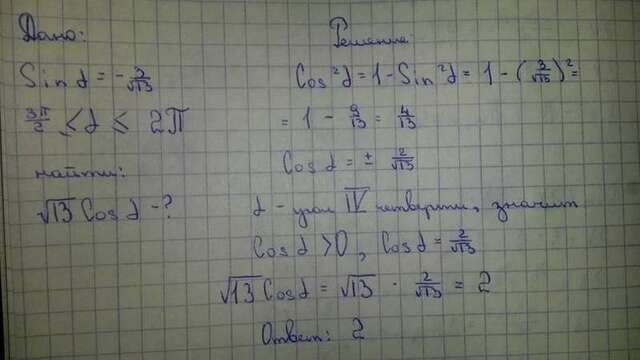 Дано:
Sin α = -3/√13
3π/2 ≤ α ≤ 2π
найти:
√13 Cos α - ?
Решение
Cos²α = 1 - Sin²α = 1 - (3/√13)² =
= 1 - 9/13 = 4/13
Cos α = ± 2/√13
α - угол IV четверти, значит
Cos α > 0, Cos α = 2/√13
√13 Cos α = √13 · 2/√13 = 2
Ответ: 2